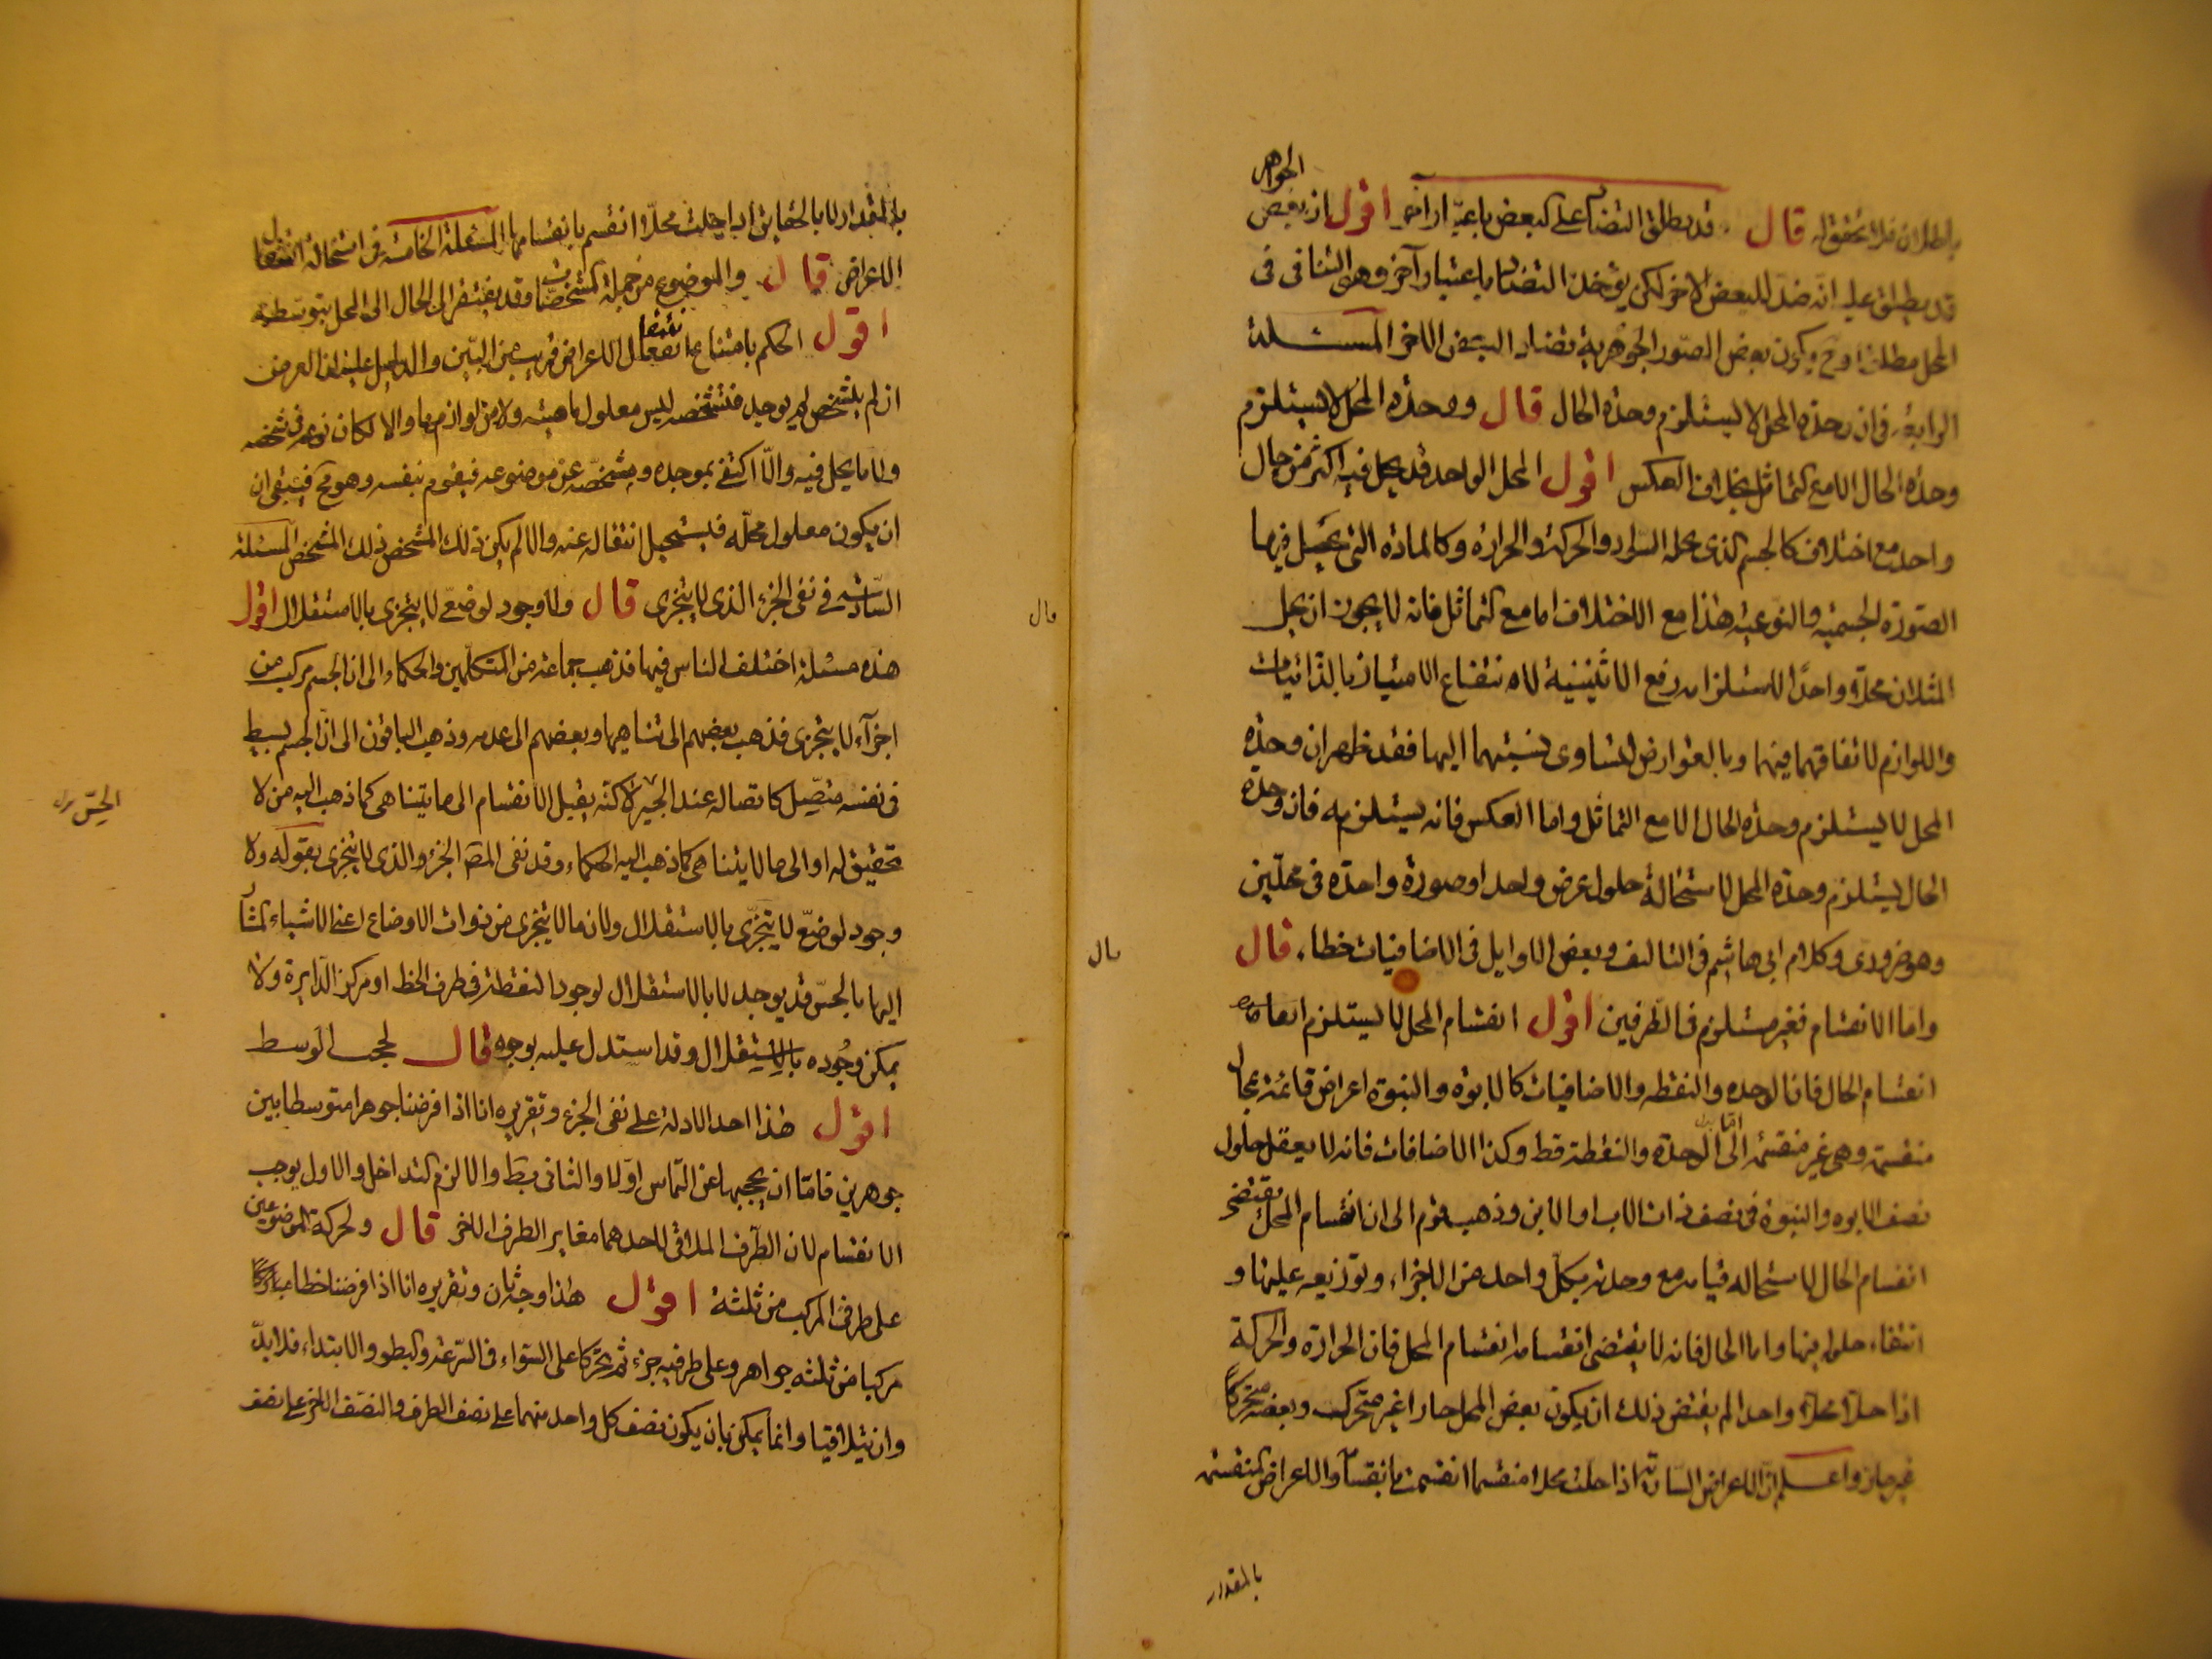 الجواهر
باطلان فلا تحقق له قال قد يطلق التضاد على البعض باعتبار آخر اقول ان بعض
قد يطلق عليه انه ضد للبعض الاخر لكن يؤخذ التضاد باعتبار آخر وهو التنافى فى
المحل مطلقا وح يكون بعض الصور الجوهرية تضاد البعض الاخر المسئلة
الرابعة فى ان وحدة المحل لا يستلزم وحدة الحال قال ووحدة المحل لا يستلزم
وحدة الحال الا مع التماثل بخلاف العكس اقول المحل الواحد قد يحل فيه اكثر من حال
واحد مع اختلاف كالجسم الذى يحله السواد والحركة والحرارة وكالمادة التى يحل فيها
الصورة الجسمية والنوعية هذا مع الاختلاف اما مع التماثل فانه لا يجوز ان يحل
المثلان محلا واحدا لاستلزامه رفع الاثنينية لانتفاء الامتياز بالذاتيات
واللوازم لاتفاقهما فيهما وبالعوارض لتساوى نسبتهما اليها فقد ظهر ان وحدة
المحل لا يستلزم وحدة الحال الا مع التماثل واما العكس فانه يستلزمه فان وحدة
الحال يستلزم وحدة المحل لاستحالة حلول عرض واحد او صورة واحدة فى محلين
وهو ضرورى وكلام ابى هاشم فى التاليف وبعض الاوايل فى الاضافيات خطاء قال
واما الانقسام فغير مستلزم فى الطرفين اقول انقسام المحل لا يستلزم
انقسام الحال فان الوحدة والنقطة والاضافيات كالابوة والبنوة اعراض قائمة بمحال
منقسمة وهى غير منقسمة اما الوحدة والنقطة فظ وكذا الاضافات فانه لا يعقل حلول
نصف الابوة والبنوة فى نصف ذات الاب او الابن وذهب قوم الى ان انقسام المحل يقتضى
انقسام الحال لاستحالة قيامه مع وحدته بكل واحد من الاجزاء وتوزيعه عليها و
انتفاء حلوله فيها واما الحال فانه لا يقتضى انقسامه انقسام المحل فان الحرارة والحركة
اذا حلا محلا واحدا لم يقتض ذلك ان يكون بعض المحل حارا غير متحرك وبعضه متحركا
غير حار واعلم ان الاعراض السارية اذا حلت محلا منقسما انقسمت بانقسامه والاعراض المنقسمة
بالمقدار
بالمقدار لا بالحقايق اذا حلت محلا انقسم بانقسامها المسئلة الخامسة فى استحالة انتقال
الاعراض قال والموضوع من جملة المشخصات وقد يفتقر الحال الى المحل بتوسطه
اقول الحكم بامتناع انتقال الاعراض قريب من البين والدليل عليه ان العرض
ان لم يتشخص لم يوجد فتشخصه ليس معلول ماهيته ولا من لوازمها والا لكان نوعه فى شخصه
ولا ما يحل فيه والا اكتفى بموجده ومشخصه عن موضوعه فيقوم بنفسه وهو مح فبقى ان
ان يكون معلول محله فيستحيل انتقاله عنه والا لم يكن ذلك الشخص ذلك الشخص المسئلة
السادسة فى نفى الجزء الذى لا يتجزى قال ولا وجود لوضعى لا يتجزى بالاستقلال اقول
هذه مسئلة اختلف الناس فيها فذهب جماعة من المتكلمين والحكماء الى ان الجسم مركب من
اجزآء لا يتجزى فذهب بعضهم الى تناهيها وبعضهم الى عدمه وذهب الباقون الى ان الجسم بسيط
فى نفسه متصل كاتصاله عند الحس لكنه يقبل الانقسام الى ما يتناهى كما ذهب اليه من لا
الحس
تحقيق له او الى ما لا يتناهى كما ذهب اليه الحكماء وقد نفى المصر الجزء الذى لا يتجزى بقوله ولا
وجود لوضعى لا يتجزى بالاستقلال ولان ما لا يتجزى من ذوات الاوضاع اعنى الاشياء المشار
اليها بالحس قد يوجد لا بالاستقلال لوجود النقطة فى طرف الخط او مركز الدايرة ولا
يمكن وجوده بالاستقلال وقد استدل عليه بوجوه قال لحجب الوسط
اقول هذا احد الادلة على نفى الجزء وتقريره انا اذا فرضنا جوهرا متوسطا بين
جوهرين فاما ان يحجبهما عن التماس اولا والثانى بط والا لزم التداخل والاول يوجب
الانقسام لان الطرف الملاقى لاحدهما مغاير الطرف الاخر قال ولحركة الموضوعين
على طرفى المركب من ثلثة اقول هذا وجه ثان وتقريره انا اذا فرضنا خطا
مركبا من ثلثة جواهر وعلى طرفيه جزء ثم تحركا على السواء فى السرعة والبطؤ والابتداء فلا بد
وان يتلاقيا وانما يمكن بان يكون نصف كل واحد منهما على نصف الطرف والنصف الاخر على نصف